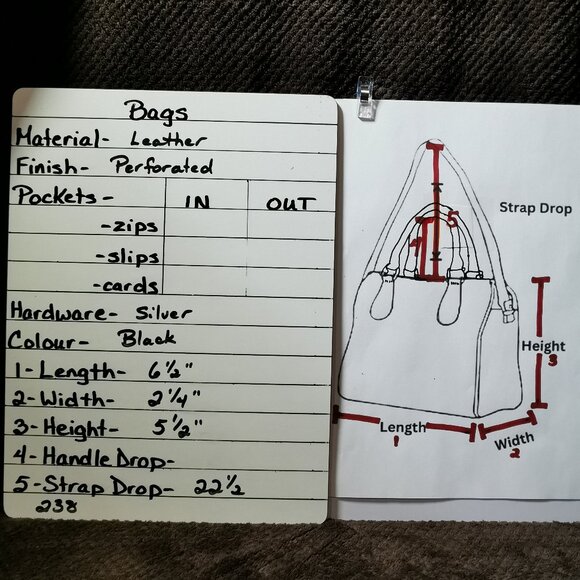 Bags
Material- Leather
Finish- Perforated
Pockets- IN OUT
-zips
-slips
-cards
Hardware- Silver
Colour- Black
1-Length- 6 1/2"
2-Width- 2 1/4"
3-Height- 5 1/2"
4-Handle Drop-
5-Strap Drop- 22 1/2
238
Strap Drop
5
4
Height
3
Length
1
Width
2